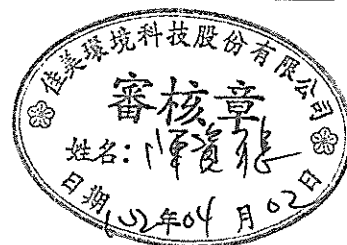 佳美環境科技股份有限公司
審核章
姓名：陳資
日期102年04月02日